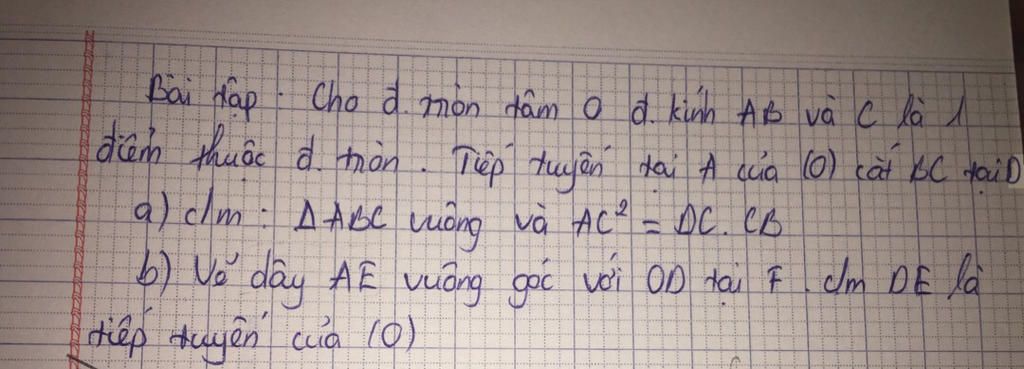 Bài tập : Cho đ. tròn tâm O đ. kính AB và C là 1
điểm thuộc đ. tròn. Tiếp tuyến tại A của (O) cắt BC tại D
a) c/m : Δ ABC vuông và AC² = DC. CB
b) Vẽ dây AE vuông góc với OD tại F. c/m DE là
tiếp tuyến của (O)